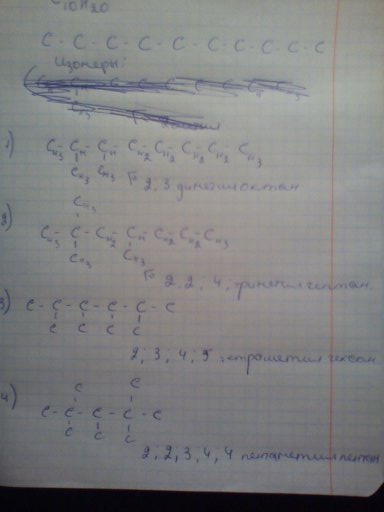 C10H20
C - C - C - C - C - C - C - C - C - C
Изомеры:
1) CH3 - CH - CH - CH2 - CH2 - CH2 - CH2 - CH3
CH3 CH3
2; 3 диметилоктан
CH3
2) CH3 - C - CH2 - CH - CH2 - CH2 - CH3
CH3 CH3
2. 2; 4; триметил гептан.
3) C - C - C - C - C - C
C C C C
2; 3; 4; 5 тетраметил гексан.
C C
4) C - C - C - C - C
C C C
2; 2, 3, 4, 4 пентаметил пентан.